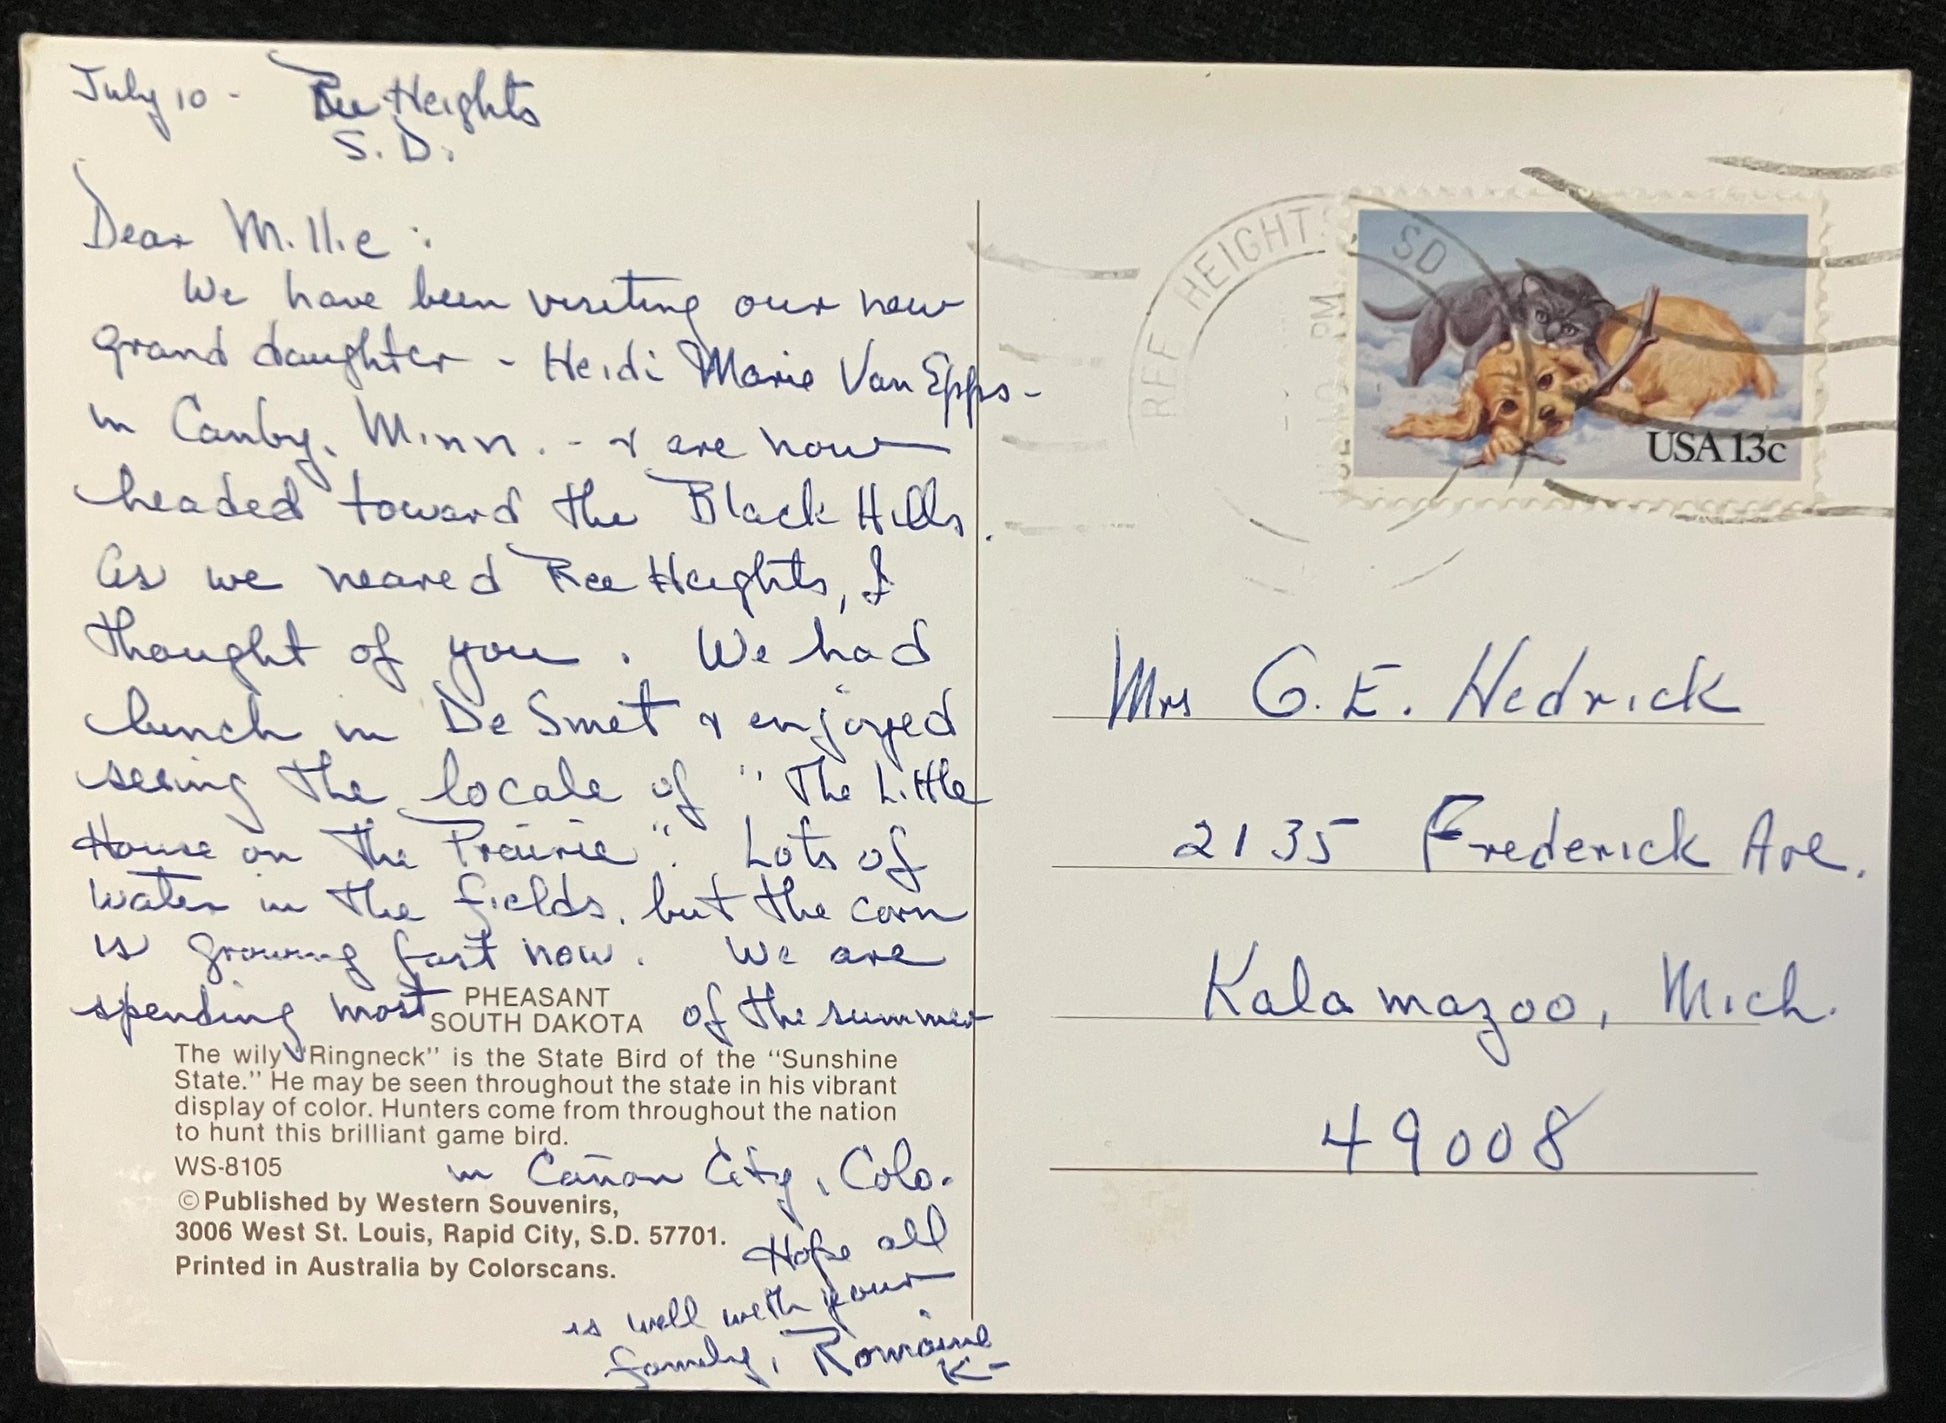 July 10 - Ree Heights
S. D.
Dear Millie:
We have been visiting our new
grand daughter - Heidi Marie Van Epps -
in Canby, Minn. - & are now
headed toward the Black Hills.
As we neared Ree Heights, I
thought of you. We had
lunch in De Smet & enjoyed
seeing the locale of "The Little
House on the Prairie". Lots of
water in the fields, but the corn
is growing fast now. We are
spending most of the summer
PHEASANT
SOUTH DAKOTA
The wily "Ringneck" is the State Bird of the "Sunshine
State." He may be seen throughout the state in his vibrant
display of color. Hunters come from throughout the nation
to hunt this brilliant game bird.
WS-8105
in Cañon City, Colo.
©Published by Western Souvenirs,
3006 West St. Louis, Rapid City, S.D. 57701.
Printed in Australia by Colorscans.
Hope all
is well with your
family, Romaine
K-
REE HEIGHTS SD
PM
USA 13c
Mrs G. E. Hedrick
2135 Frederick Ave.
Kalamazoo, Mich.
49008